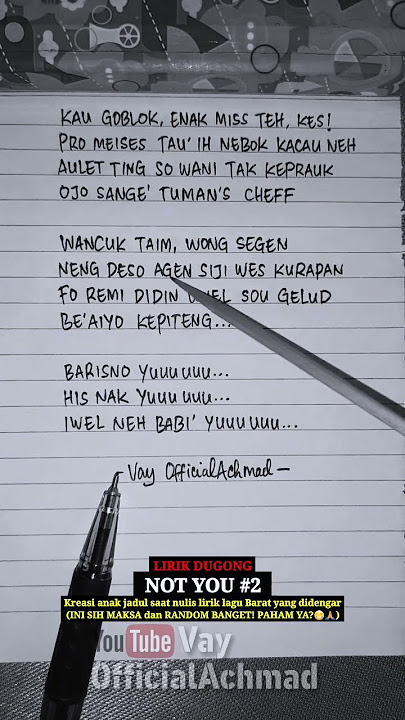 KAU GOBLOK, ENAK MISS TEH, KES!
PRO MEISES TAU' IH NEBOK KACAU NEH
AULET TING SO WANI TAK KEPRAUK
OJO SANGE' TUMAN'S CHEFF
WANCUK TAIM, WONG SEGEN
NENG DESO AGEN SIJI WES KURAPAN
FO REMI DIDIN SOU GELUD
BE'AIYO KEPITENG...
BARISNO YUUUUUU...
HIS NAK YUUUUUU...
IWEL NEH BABI' YUUUUUU...
- Vay OfficialAchmad -
LIRIK DUGONG
NOT YOU #2
Kreasi anak jadul saat nulis lirik lagu Barat yang didengar
(INI SIH MAKSA dan RANDOM BANGET! PAHAM YA?😁🙏)
YouTube Vay
OfficialAchmad